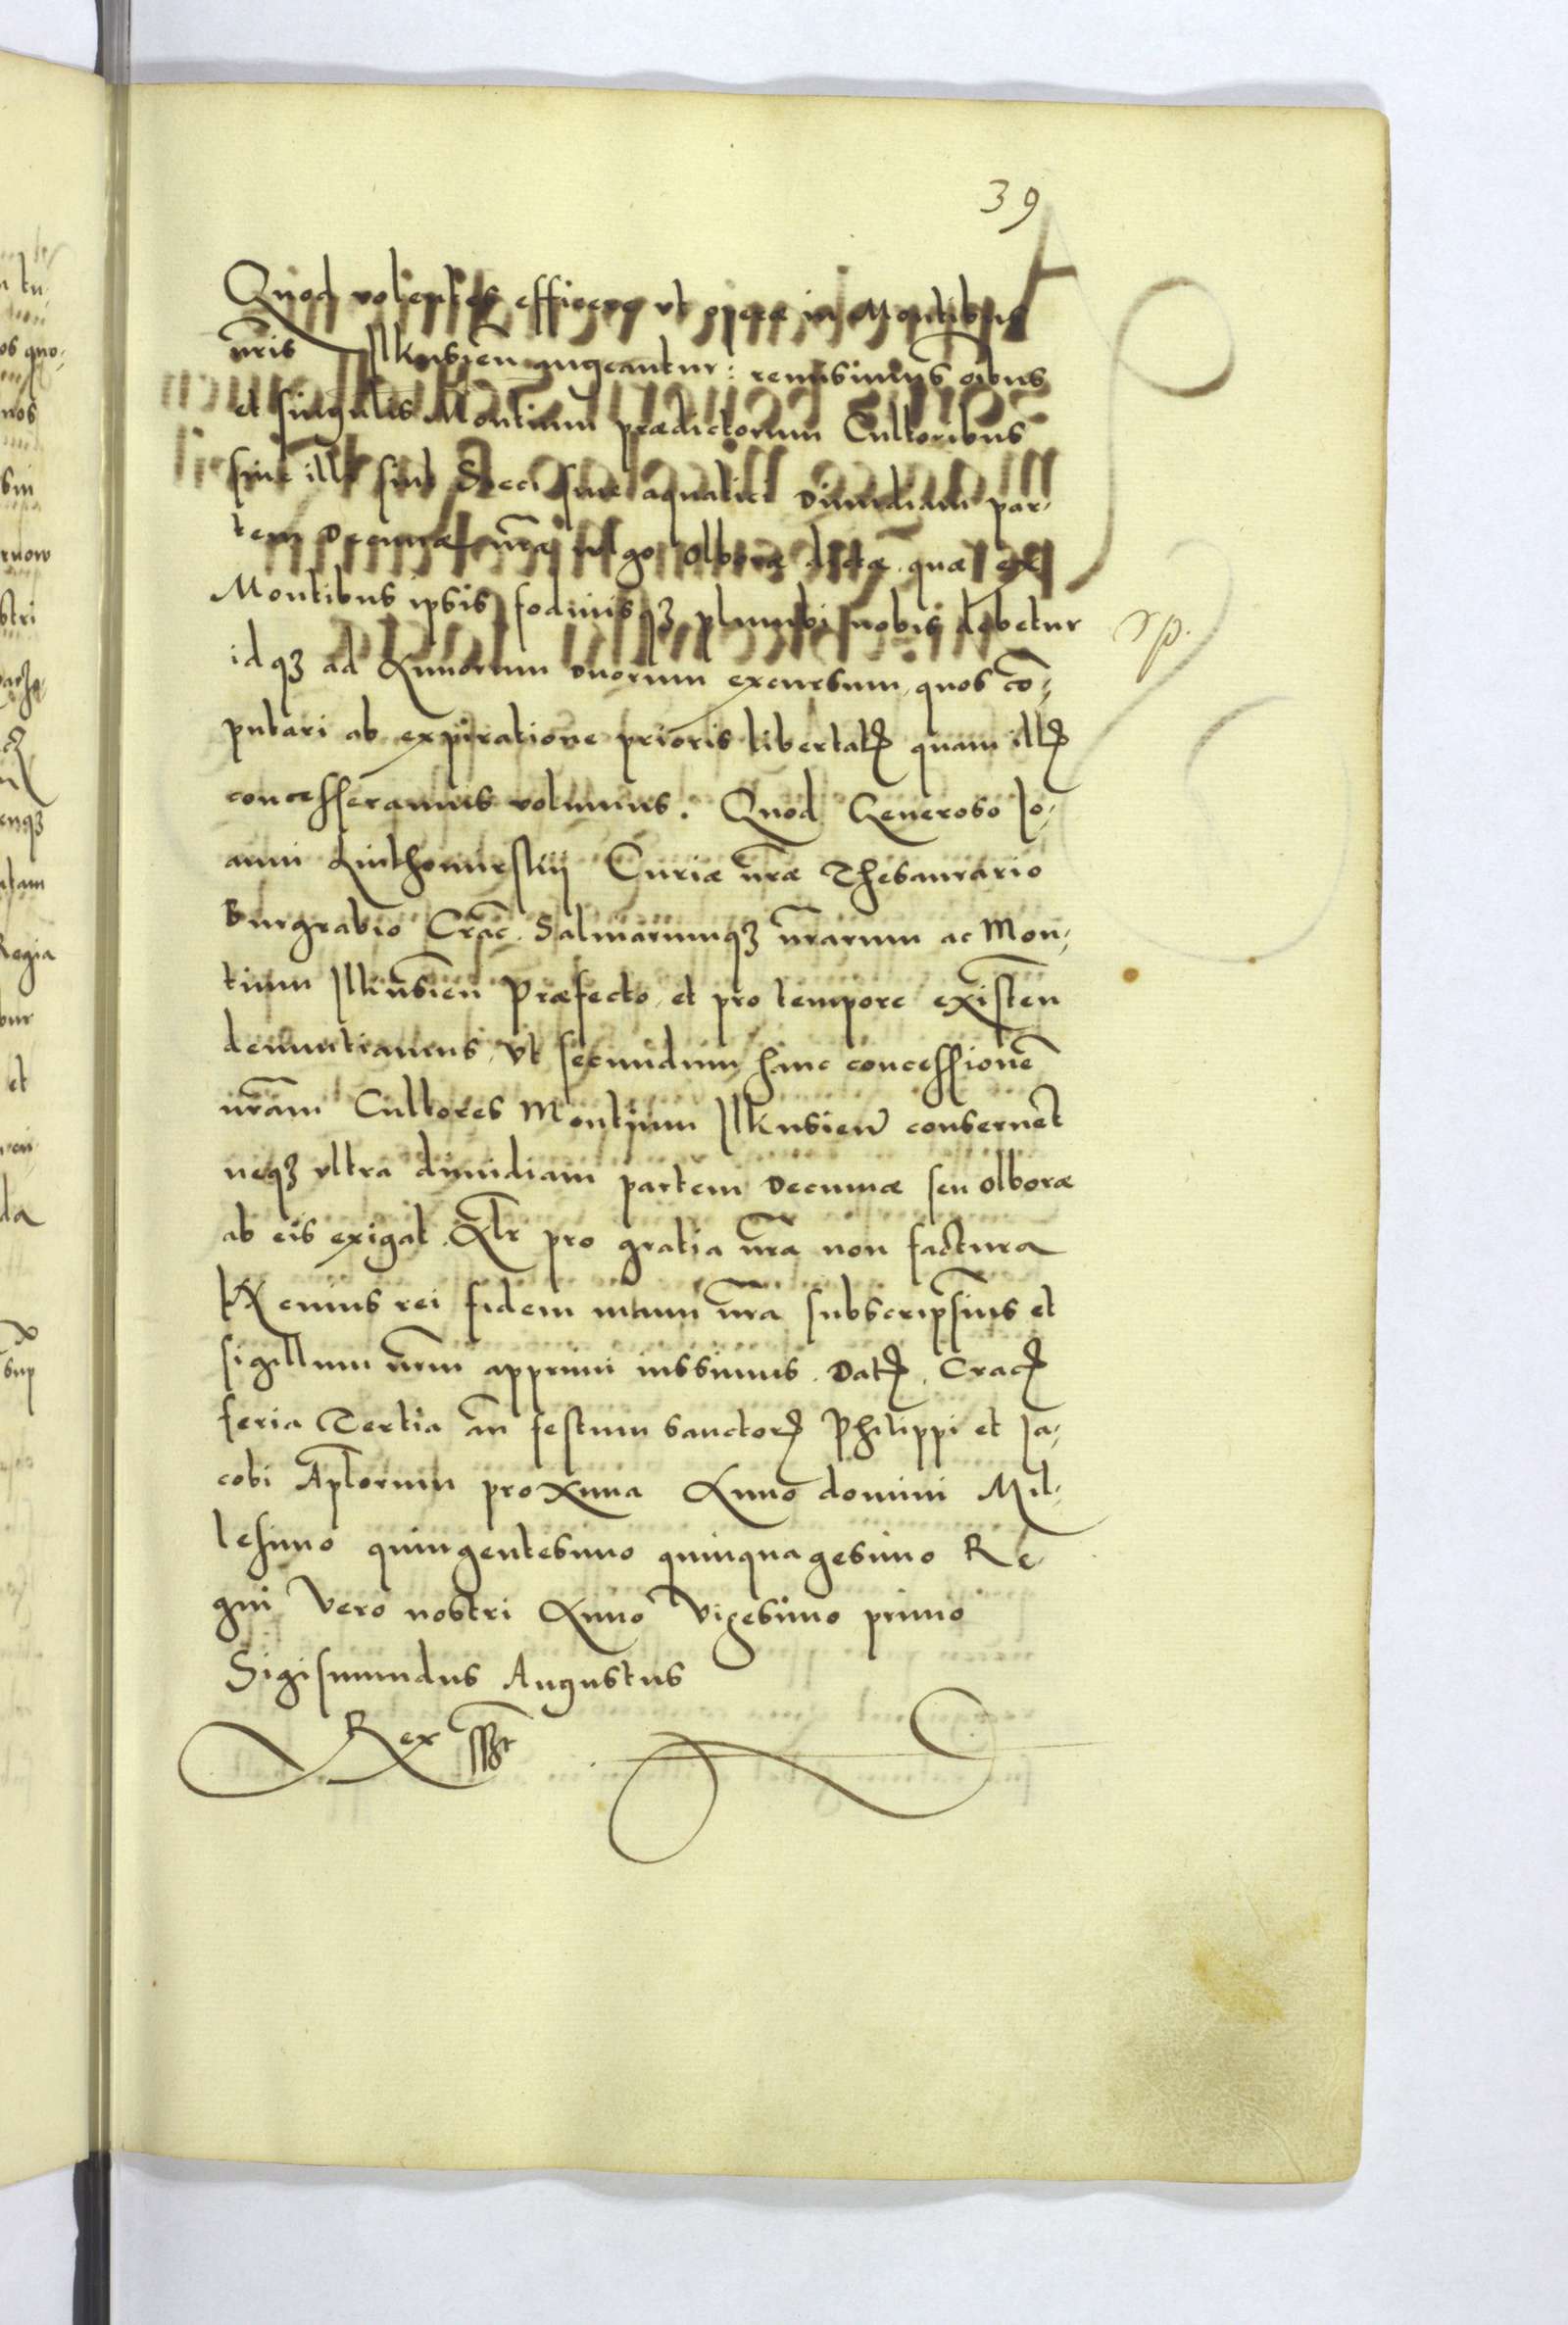 39
Quod volentes efficere ut operæ in Montibus
nr̃is Ilkusieñ augeantur: remisimus oĩbus
et singulis Montium prædictorum Cultoribus
sive illi sint Sicci sive aquatici Dimidiam par-
tem Decimæ nr̃æ vulgo Olboræ dictæ, quæ ex
Montibus ipsis fodinisqꝫ plumbi nobis debetur
idqꝫ ad Annorum duorum excursum, quos cõ-
putari ab expiratione prioris libertatꝭ quam illꝭ
concesseramus volumus. Quod Generoso Jo-
anni Luthomirskij Curiæ nr̃æ Thesaurario
Burgrabio Crac̃. Salinarumqꝫ nr̃arum ac Mon-
tium Ilkusieñ Præfecto, et pro tempore existeñ
denuntiamus, ut secundum hanc concessionẽ
nr̃am Cultores Montium Ilkusieñ conservet
neqꝫ ultra dimidiam partem Decimæ seu olboræ
ab eis exigat. Alr̃ pro gratia nr̃a non factura
In cuius rei fidem manu nr̃a subscripsimus et
sigillum nr̃m apprimi iussimus. Datꝭ. Cracꝭ
feria Tertia añ festum sanctorꝭ Philippi et Ja-
cobi Apl̃orum proxima Anno domini Mil-
lesimo quingentesimo quinquagesimo Re-
gni vero nostri Anno Vigesimo primo
Sigismundus Augustus
Rex sszt